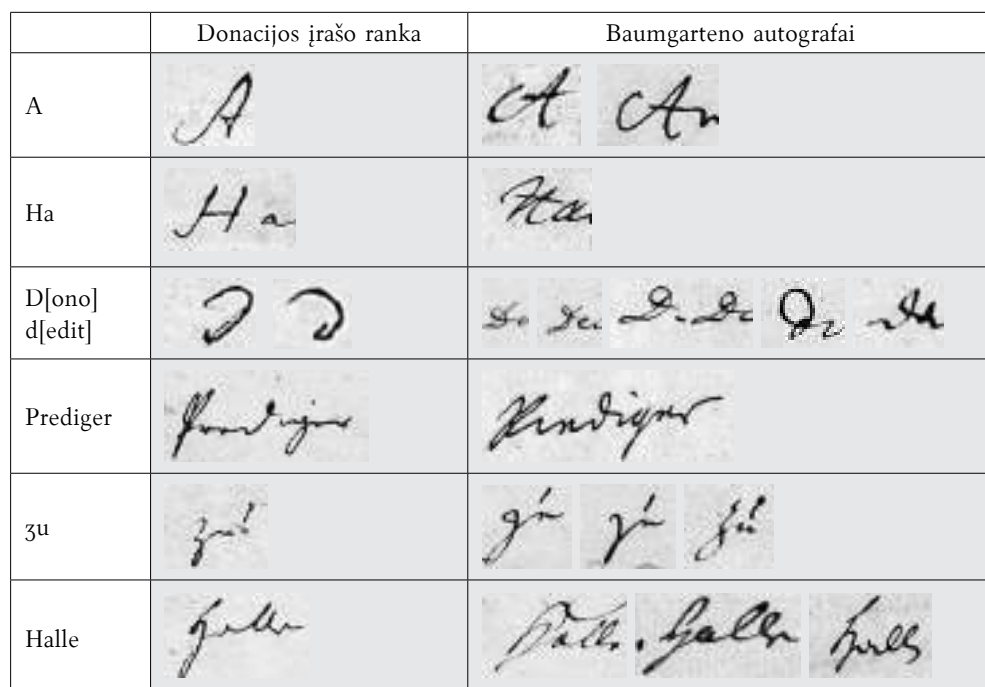 Donacijos įrašo ranka Baumgarteno autografai
A A A An
Ha H a Ha
D[ono] d[edit] D D De De D. De D
Prediger Prediger Prediger
ʒu zu zu zu zu
Halle Halle Halle. Halle Halle